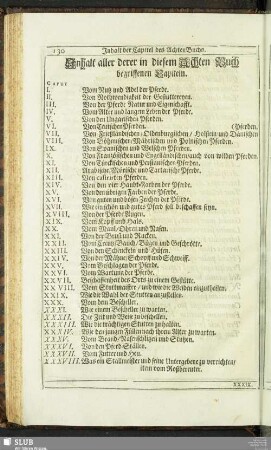 130 Inhalt der Capitel des Achten Buchs.
Inhalt aller derer in diesem Achten Buch
begriffenen Capiteln.
Caput
I. Vom Nutz und Adel der Pferde.
II. Von Beschreibung der Gestütereyen.
III. Von der Pferde Natur und Eigenschafft.
IV. Vom Alter und langem Leben der Pferde.
V. Von den Ungarischen Pferden.
VI. Von Teutschen Pferden. (Pferden.
VII. Von Frießländischen, Oldenburgischen, Holstein und Dänischen
VIII. Von Böhmischen, Mährischen und Polnischen Pferden.
IX. Von Spanischen und Welschen Pferden.
X. Von Frantzösischen und Engelländischen, auch von wilden Pferden.
XI. Von Türckischen und Persianischen Pferden.
XII. Arabische, Mörische und Tartarische Pferde.
XIII. Von
XIV. Von den vier Haubt-Farben der Pferde.
XV. Von den übrigen Farben der Pferde.
XVI. Von guten und bösen Zeichen der Pferde.
XVII. Wie ein schön und gutes Pferd soll beschaffen seyn.
XVIII. Von der Pferde Augen.
XIX. Vom Kopff und Hals.
XX. Vom Maul, Ohren und Nasen.
XXI. Von der Brust und Rucken.
XXII. Vom Bauch, Bügen und Geschröte.
XXIII. Von den Schenckeln und Hüfen.
XXIV. Von der Mähne, Schopff und Schweiff.
XXV. Vom Beschlagen der Pferde.
XXVI. Vom Wartung der Pferde.
XXVII. Beschaffenheit des Orts zu einem Gestütte.
XXVIII. Vom Stuttmaister, und wie die Weiden einzutheilen.
XXIX. Wie die Wahl der Stutten anzustellen.
XXX. Vom dem Bescheller.
XXXI. Wie einem Bescheller zu warten.
XXXII. Der Zeit und Weise zu beschellen.
XXXIII. Wie die trächtigen Stutten zu halten.
XXXIV. Wie der jungen Füllen nach ihrem Alter zu warten.
XXXV. Vom Brand, Nasenschlitzen und Stutzen.
XXXVI. Von den Pferd-Ställen.
XXXVII. Vom Futter und Heu.
XXXVIII. Was ein Stallmeister und seine Untergebene zu verrichten,
item vom Roßbereuter.
XXXIX.
SLUB